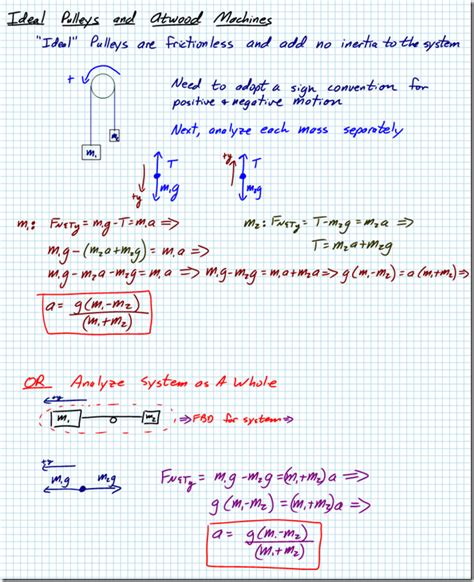 Ideal Pulleys and Atwood Machines
"Ideal" Pulleys are frictionless and add no inertia to the system
+
Need to adopt a sign convention for
positive & negative motion
Next, analyze each mass separately
m₂
m₁
T
+y
m₁g
+y
T
m₂g
m₁: F_NETy = m₁g - T = m₁a ⇒
m₂: F_NETy = T - m₂g = m₂a ⇒
T = m₂a + m₂g
m₁g - (m₂a + m₂g) = m₁a ⇒
m₁g - m₂a - m₂g = m₁a ⇒ m₁g - m₂g = m₁a + m₂a ⇒ g(m₁ - m₂) = a(m₁ + m₂) ⇒
a = g(m₁ - m₂) / (m₁ + m₂)
OR Analyze System as A Whole
+y
m₁
m₂
⇒ FBD for system ⇒
+y
m₁g
m₂g
F_NETy = m₁g - m₂g = (m₁ + m₂)a ⇒
g(m₁ - m₂) = (m₁ + m₂)a ⇒
a = g(m₁ - m₂) / (m₁ + m₂)